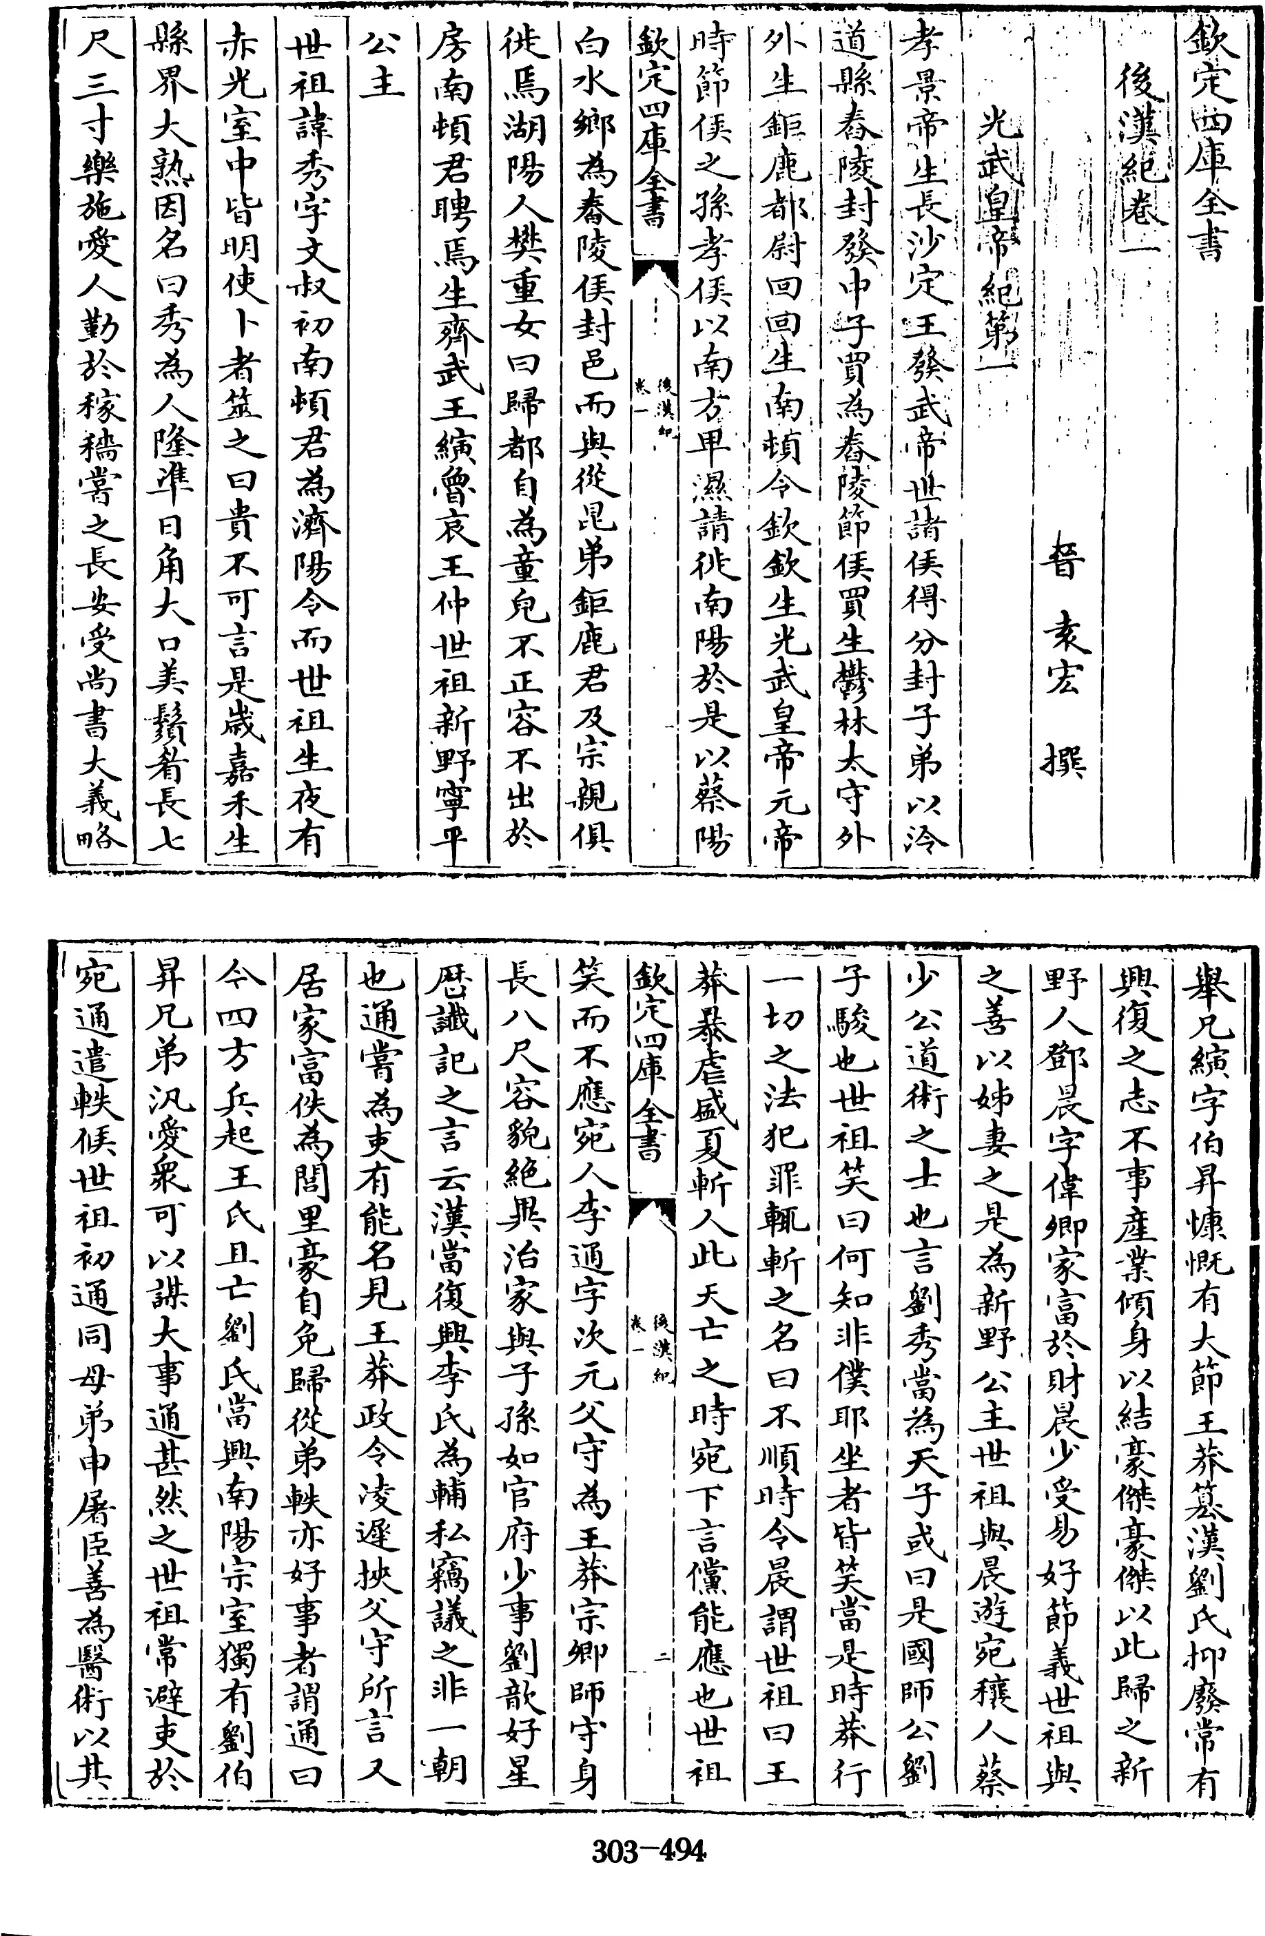 欽定四庫全書
後漢紀卷一
晉 袁宏 撰
光武皇帝紀第一
孝景帝生長沙定王發武帝世諸侯得分封子弟以泠
道縣舂陵封發中子買為舂陵節侯買生鬱林太守外
外生鉅鹿都尉回回生南頓令欽欽生光武皇帝元帝
時節侯之孫孝侯以南方卑濕請徙南陽於是以蔡陽
欽定四庫全書
後漢紀
卷一
一
白水鄉為舂陵侯封邑而與從昆弟鉅鹿君及宗親俱
徙焉湖陽人樊重女曰歸都自為童兒不正容不出於
房南頓君聘焉生齊武王縯魯哀王仲世祖新野寧平
公主
世祖諱秀字文叔初南頓君為濟陽令而世祖生夜有
赤光室中皆明使卜者筮之曰貴不可言是歲嘉禾生
縣界大熟因名曰秀為人隆準日角大口美鬚眉長七
尺三寸樂施愛人勤於稼穡嘗之長安受尚書大義略
舉兄縯字伯昇慷慨有大節王莽簒漢劉氏抑廢常有
興復之志不事産業傾身以結豪傑豪傑以此歸之新
野人鄧晨字偉卿家富於財晨少受易好節義世祖與
之善以姊妻之是為新野公主世祖與晨遊宛穰人蔡
少公道術之士也言劉秀當為天子或曰是國師公劉
子駿也世祖笑曰何知非僕耶坐者皆笑當是時莽行
一切之法犯罪輒斬之名曰不順時令晨謂世祖曰王
莽暴虐盛夏斬人此天亡之時宛下言儻能應也世祖
欽定四庫全書
後漢紀
卷一
二
笑而不應宛人李通字次元父守為王莽宗卿師守身
長八尺容貌絶異治家與子孫如官府少事劉歆好星
歴讖記之言云漢當復興李氏為輔私竊議之非一朝
也通嘗為吏有能名見王莽政令凌遲挾父守所言又
居家富佚為閭里豪自免歸從弟軼亦好事者謂通曰
今四方兵起王氏且亡劉氏當興南陽宗室獨有劉伯
昇兄弟汎愛衆可以謀大事通甚然之世祖常避吏於
宛通遣軼候世祖初通同母弟申屠臣善為醫術以其
303-494